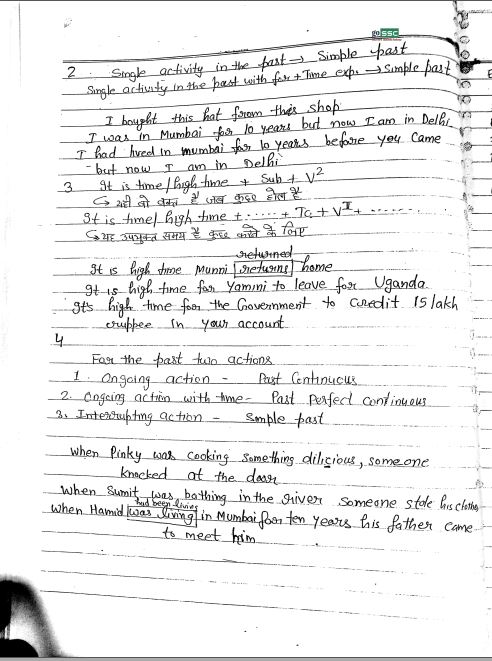 SSC
2. Single activity in the past → Simple past
Single activity in the past with for + Time exp. → Simple past
I bought this hat from this shop
I was in Mumbai for 10 years but now I am in Delhi
I had lived in mumbai for 10 years before you came
but now I am in Delhi
3 It is time/high time + Sub + V²
↳ यही वो वक्त है जब कुछ होता है
It is time/ high time + ...... + To + Vᴵ + .......
↳ यह उपयुक्त समय है कुछ करने के लिए
returned
It is high time Munni returns home
It is high time for Yamini to leave for Uganda
It's high time for the Government to credit 15 lakh
eruppee in your account
4
For the past two actions
1. Ongoing action - Past Continuous
2. Ongoing action with time- Past perfect continuous
3. Interrupting action - Simple past
When Pinky was cooking something dilicious, someone
knocked at the door
When Sumit was bathing in the river Someone stole his clothes
had been living
When Hamid was living in Mumbai for ten years his father came
to meet him